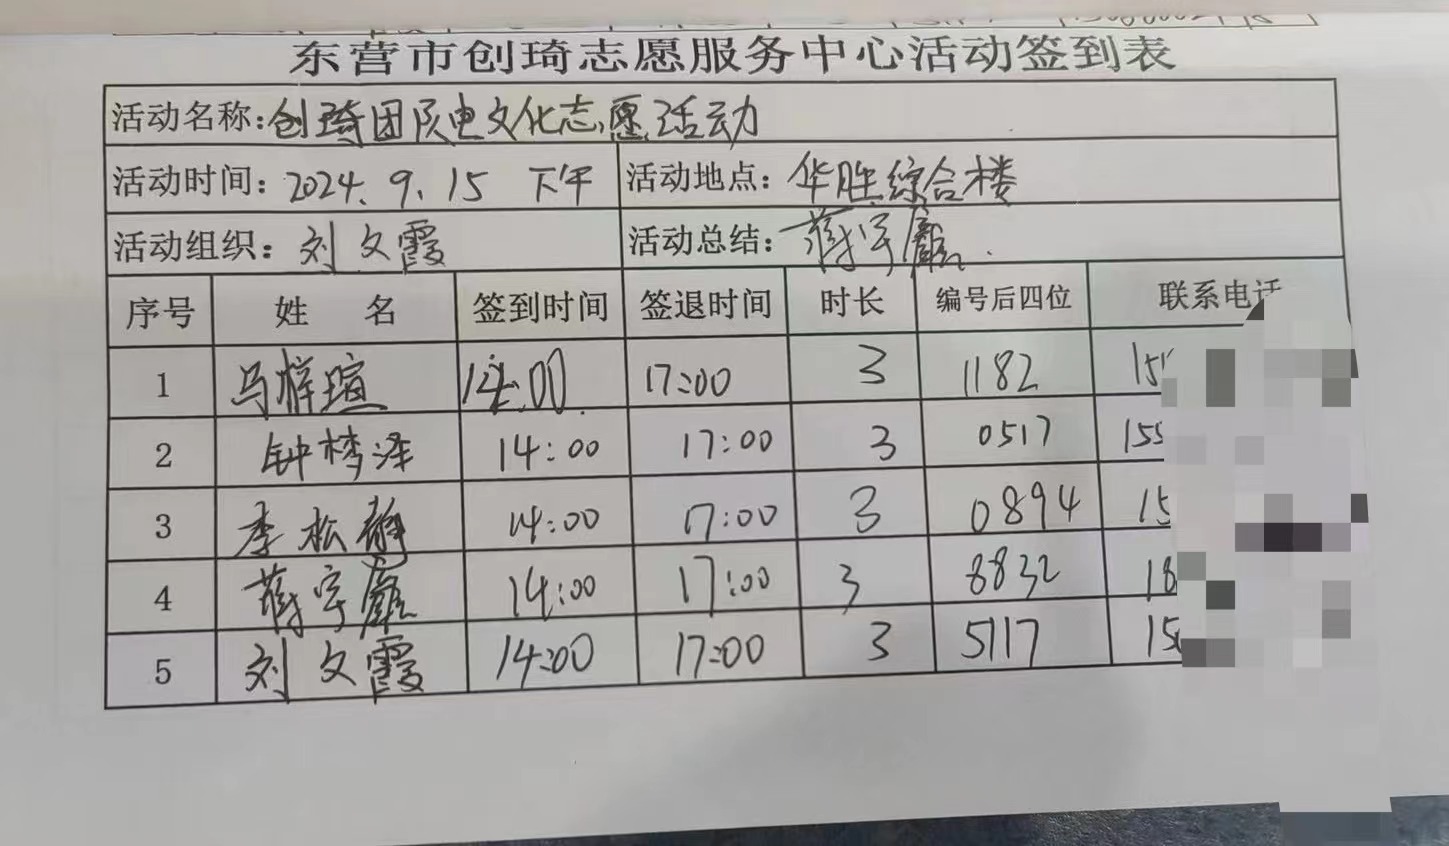 东营市创琦志愿服务中心活动签到表
活动名称：创琦团队电文化志愿活动
活动时间：2024.9.15 下午 活动地点：华胜综合楼
活动组织：刘文霞 活动总结：蒋宇
序号 姓 名 签到时间 签退时间 时长 编号后四位 联系电话
1 马梓瑄 14:00 17:00 3 1182 15
2 钟梦泽 14:00 17:00 3 0517 155
3 李松静 14:00 17:00 3 0894 15
4 蒋宇 14:00 17:00 3 8832 18
5 刘文霞 14:00 17:00 3 5117 15